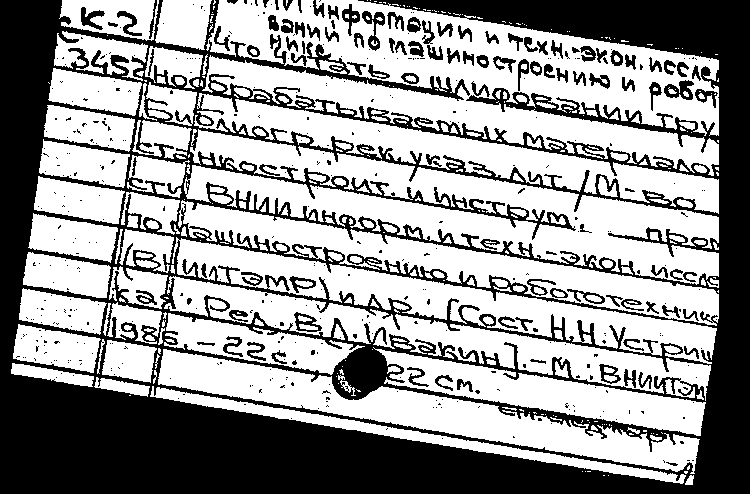 К-2
ВНИИ информации и техн.-экон. иссле
ваний по машиностроению и робот
нике.
3452
Что читать о шлифовании тру
нообрабатываемых материалов
Библиогр. рек. указ. лит. / М-во
станкостроит. и инструм. пром
сти, ВНИИ информ. и техн.-экон. иссле
по машиностроению и робототехнике
(ВНИИТЭМР) и др.; [Сост. Н.Н. Устри
кая; Ред. В.Л. Ивакин]. - М.: ВНИИТЭМ
1986. - 22 с.; 22 см.